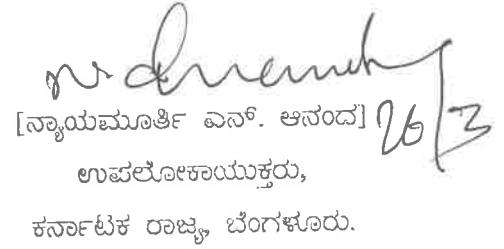 [ನ್ಯಾಯಮೂರ್ತಿ ಎನ್. ಆನಂದ] 26/3
ಉಪಲೋಕಾಯುಕ್ತರು,
ಕರ್ನಾಟಕ ರಾಜ್ಯ, ಬೆಂಗಳೂರು.